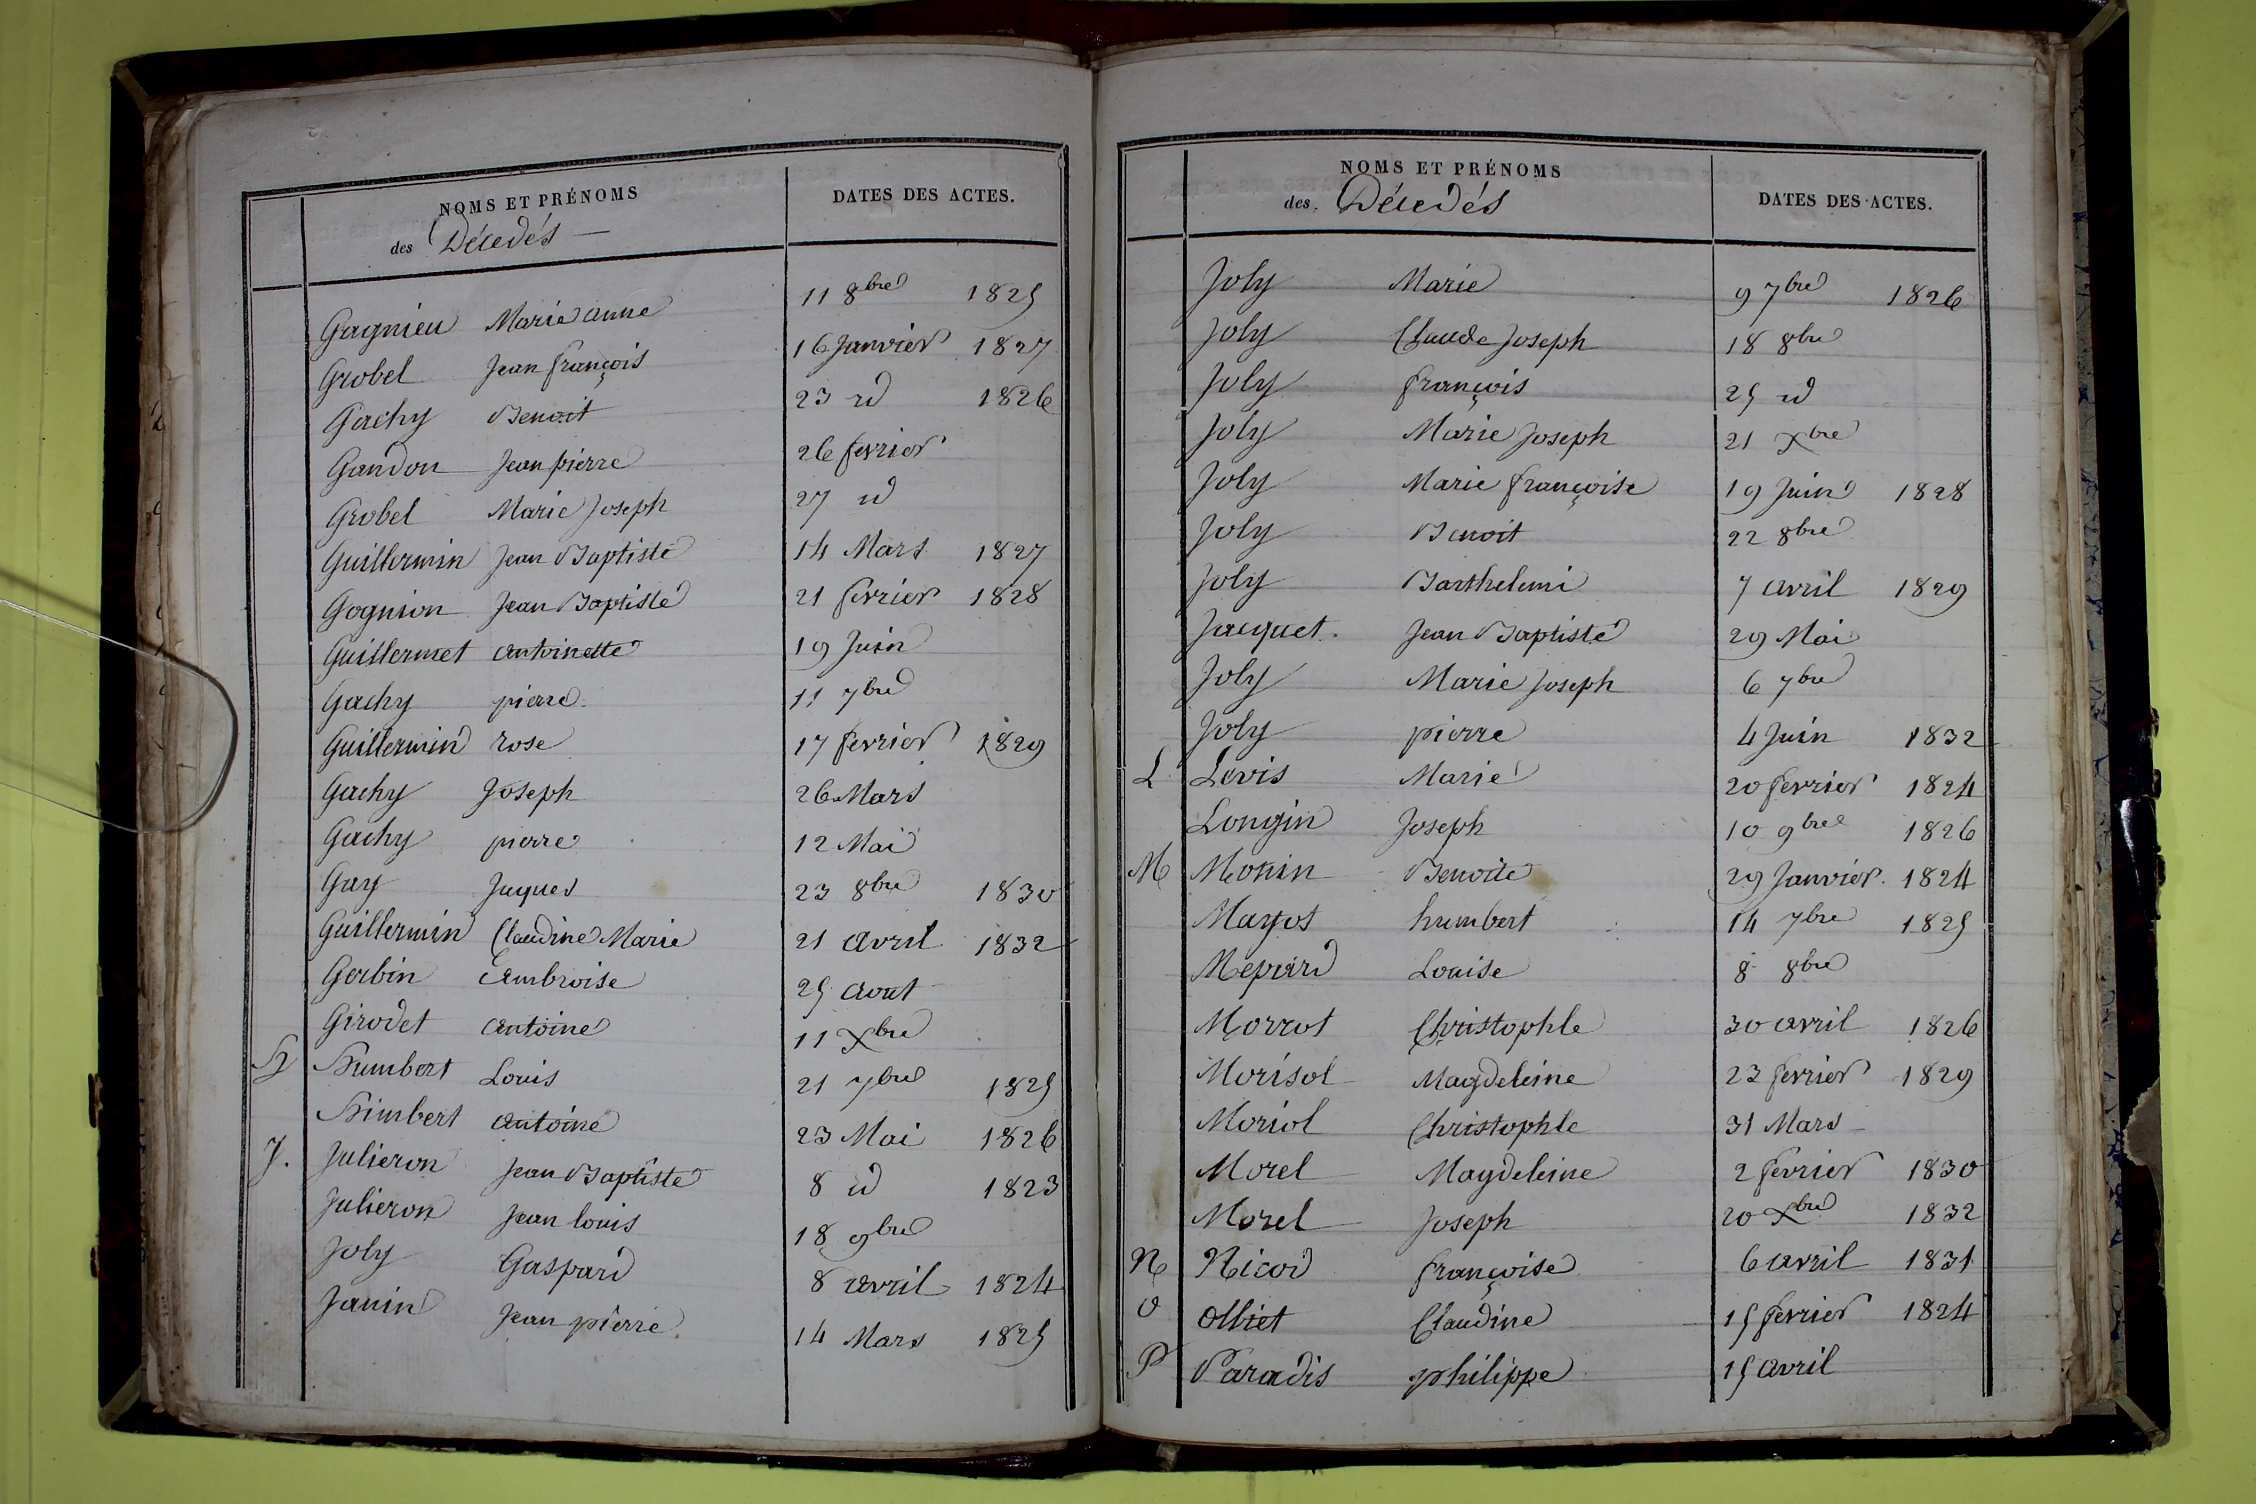 NOMS ET PRÉNOMS
des Décedés
DATES DES ACTES.
Gagnieu Marie anne 11 8bre 1825
Grobel Jean françois 16 Janvier 1827
Gachy Benoit 23 id 1826
Gandon Jean pierre 26 fevrier
Grobel Marie Joseph 27 id
Guillermin Jean Baptiste 14 Mars 1827
Gognion Jean Baptiste 21 fevrier 1828
Guillermet antoinette 19 Juin
Gachy pierre 11 7bre
Guillermin rose 17 fevrier 1829
Gachy Joseph 26 Mars
Gachy pierre 12 Mai
Gay Jaques 23 8bre 1830
Guillermin Claudine Marie 21 avril 1832
Gerbin Ambroise 25 aout
Girodet antoine 11 Xbre
H Humbert Louis 21 7bre 1825
Himbert antoine 23 Mai 1826
J. Julieron Jean Baptiste 8 id 1823
Julieron Jean louis 18 9bre
Joly Gaspard 8 avril 1824
Janin Jean pierre 14 Mars 1825
NOMS ET PRÉNOMS
des Décedés
DATES DES ACTES.
Joly Marie 9 7bre 1826
Joly Claude Joseph 18 8bre
Joly françois 25 id
Joly Marie Joseph 21 Xbre
Joly Marie françoise 19 Juin 1828
Joly Benoit 22 8bre
Joly Barthelemi 7 avril 1829
Jacquet Jean Baptiste 29 Mai
Joly Marie Joseph 6 7bre
Joly pierre 4 Juin 1832
L Levis Marie 20 fevrier 1824
Longin Joseph 10 9bre 1826
M Monin Benoite 29 Janvier 1824
Mayot humbert 14 7bre 1825
Mepard Louise 8 8bre
Morrot Christophle 30 avril 1826
Morisot Magdeleine 23 fevrier 1829
Moriot Christophle 31 Mars
Morel Magdeleine 2 fevrier 1830
Morel Joseph 20 Xbre 1832
N Nicod françoise 6 avril 1831
O Olliet Claudine 15 fevrier 1824
P Paradis philippe 15 avril